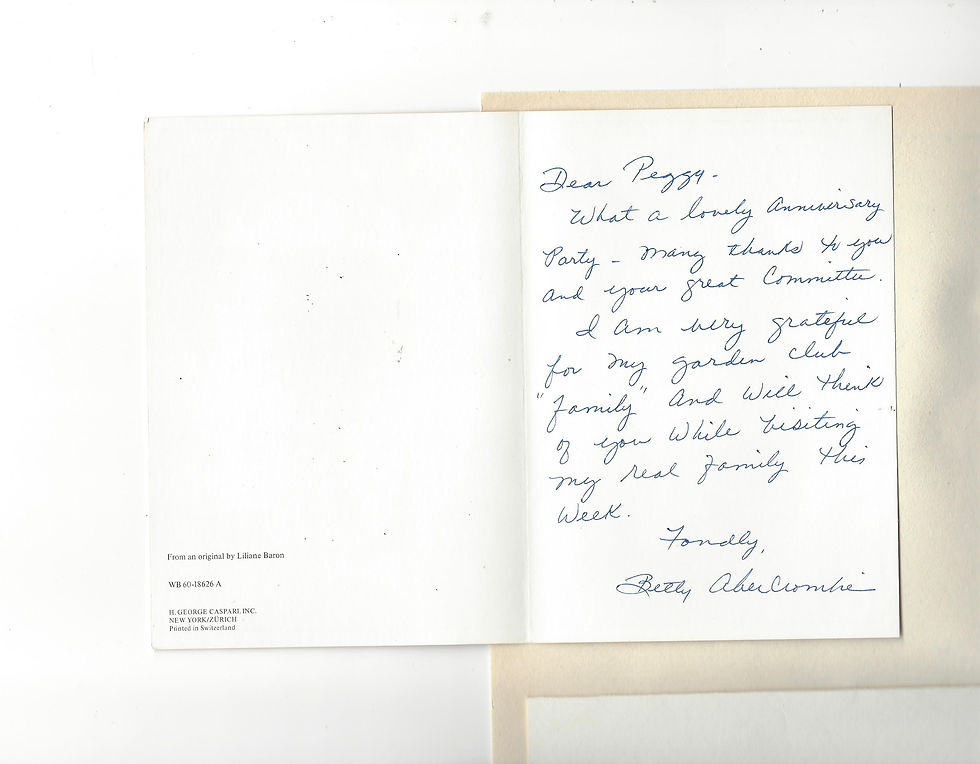 From an original by Liliane Baron
WB 60-18626 A
H. GEORGE CASPARI, INC.
NEW YORK/ZÜRICH
Printed in Switzerland
Dear Peggy-
What a lovely Anniversary
Party - Many thanks to you
and your great Committee.
I am very grateful
for my garden club
"family" and will think
of you while visiting
my real family this
week.
Fondly,
Betty Abercrombie